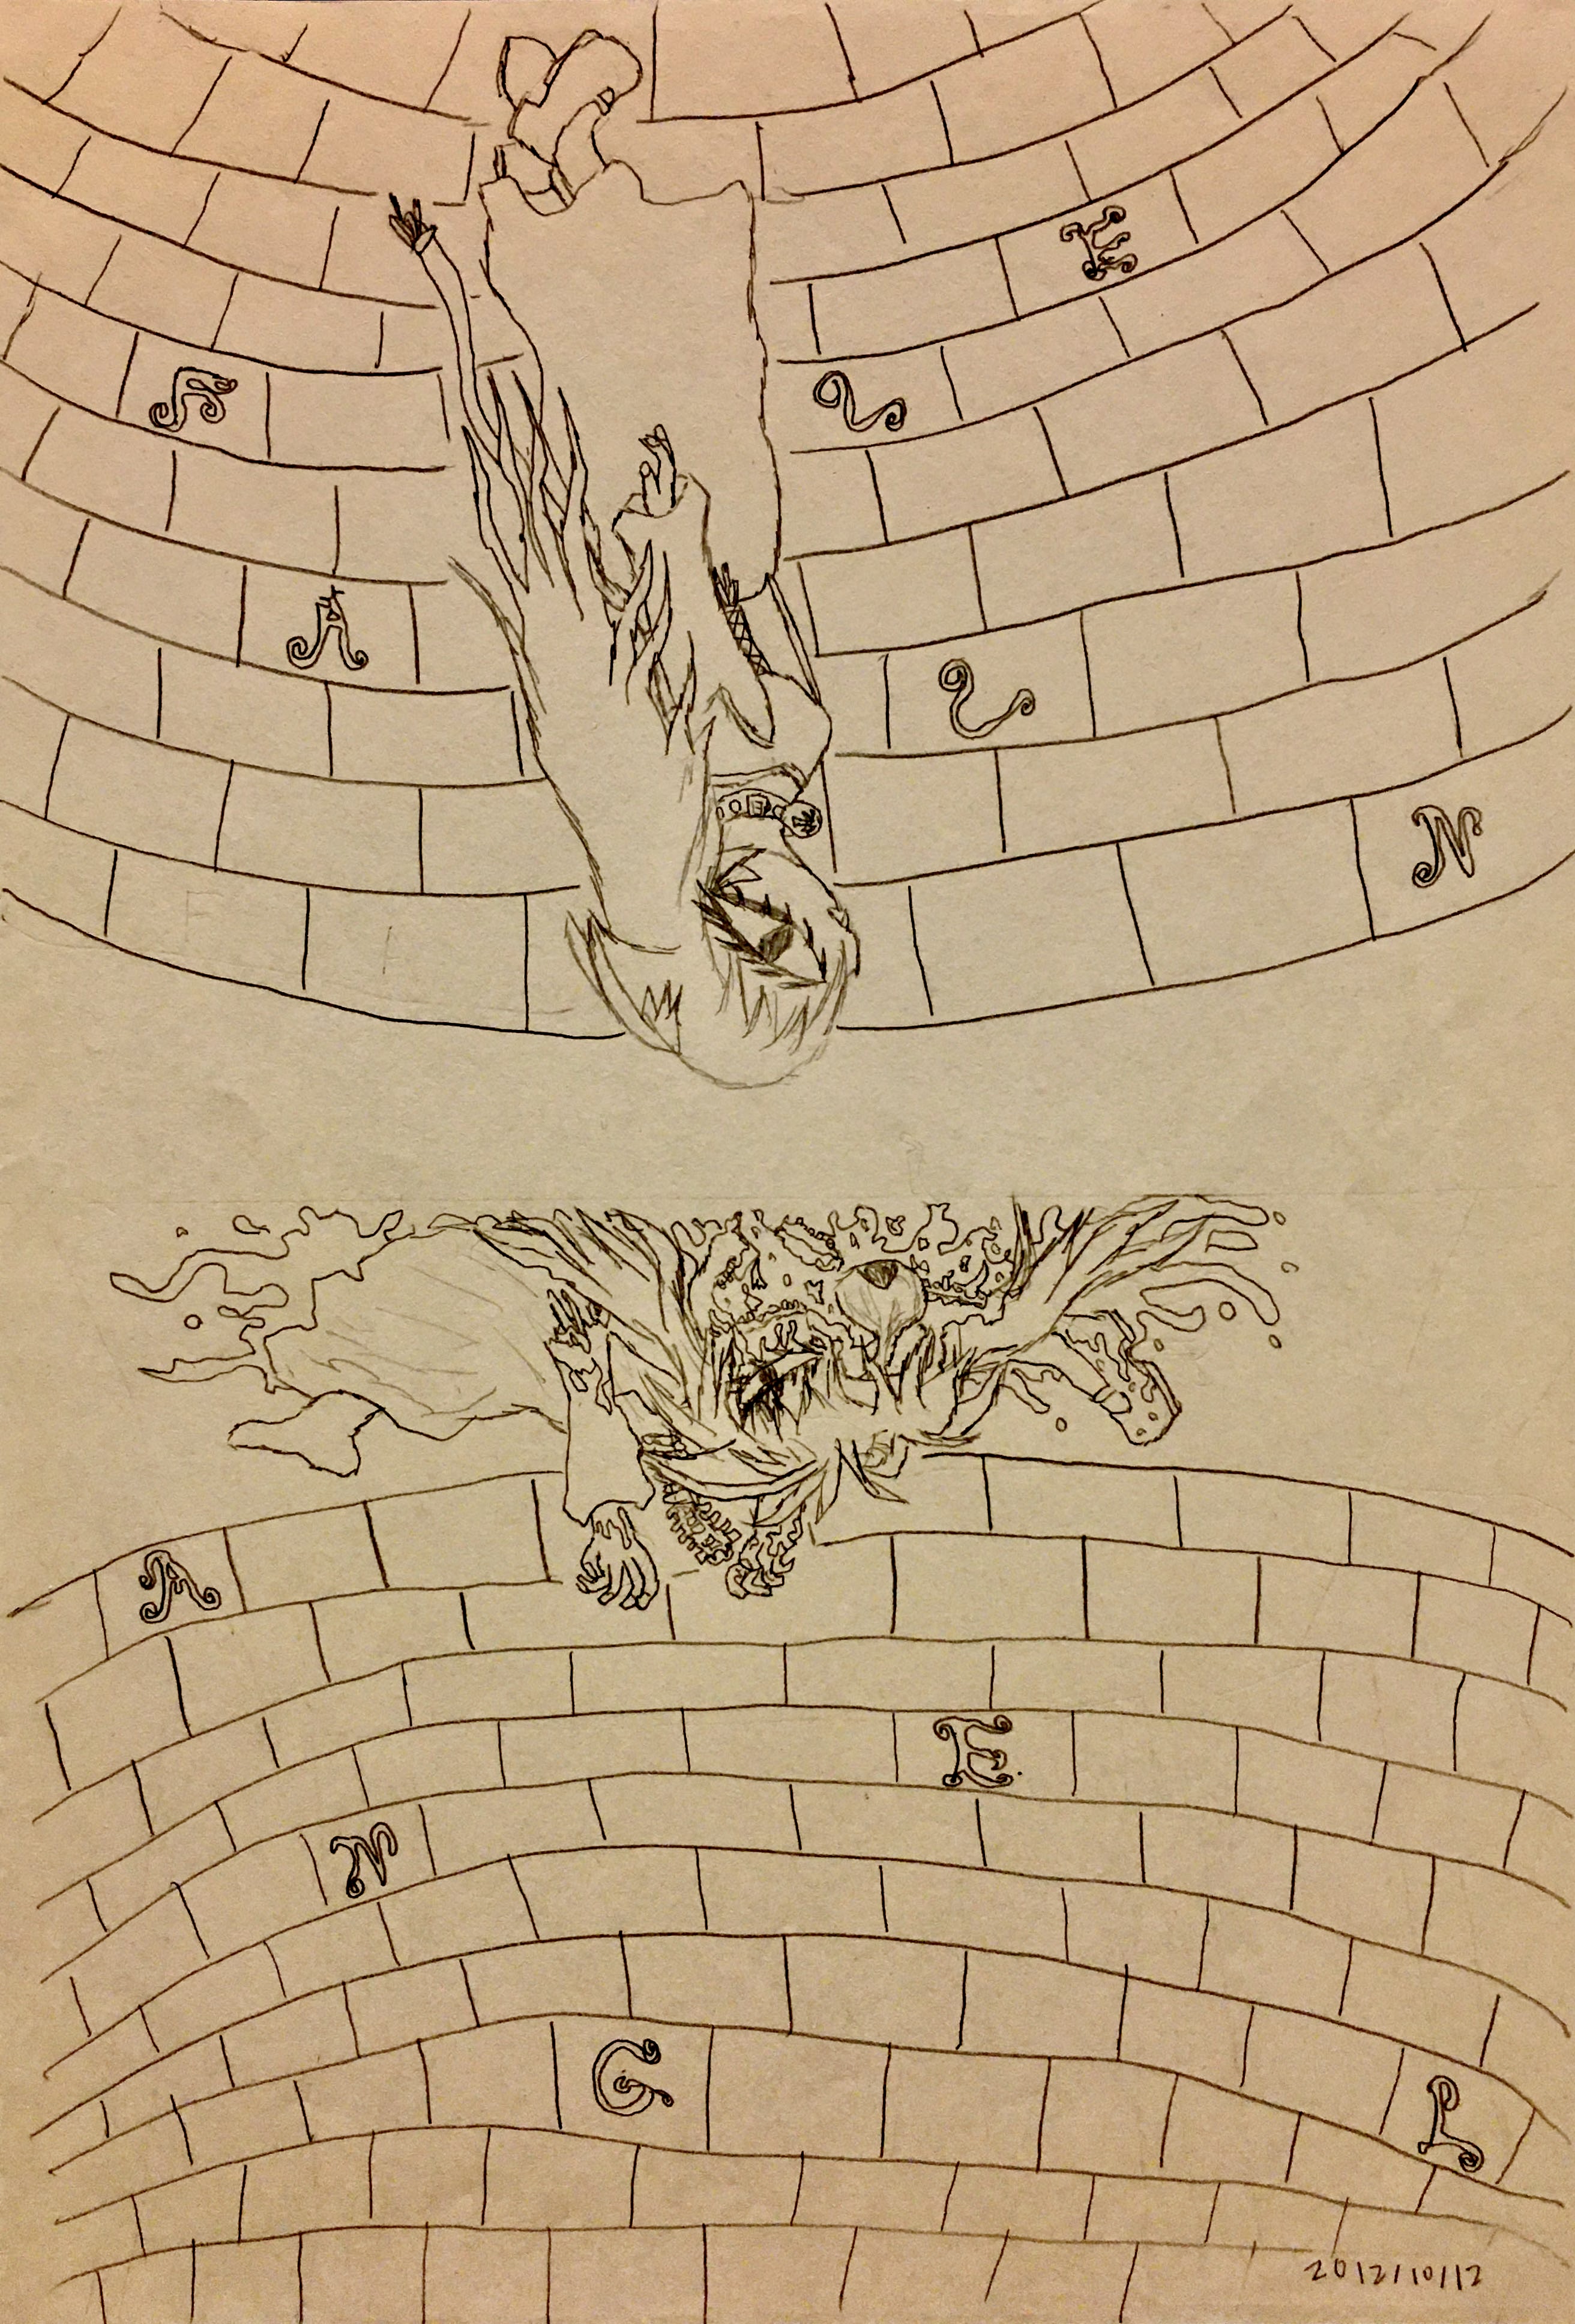 FALLEN
ANGEL
2012/10/12